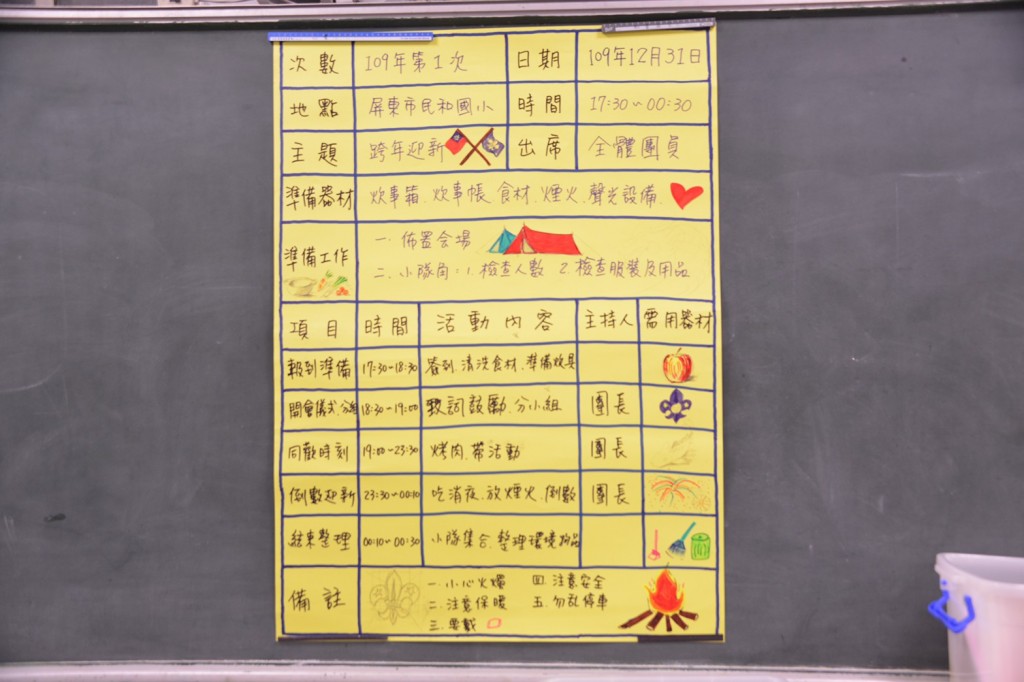 次數 109年第1次 日期 109年12月31日
地點 屏東市民和國小 時間 17:30~00:30
主題 跨年迎新 出席 全體團員
準備器材 炊事箱、炊事帳、食材、煙火、聲光設備、
準備工作 一、佈置会場
二、小隊角:1.檢查人數 2.檢查服裝及用品
項目 時間 活動內容 主持人 需用器材
報到準備 17:30~18:30 簽到、清洗食材、準備炊具
開會儀式、分組 18:30~19:00 致詞鼓勵、分小組 團長
同歡時刻 19:00~23:30 烤肉、帶活動 團長
倒數迎新 23:30~00:10 吃消夜、放煙火、倒數 團長
結束整理 00:10~00:30 小隊集合、整理環境物品
備註 一、小心火燭 四、注意安全
二、注意保暖 五、勿乱停車
三、要戴